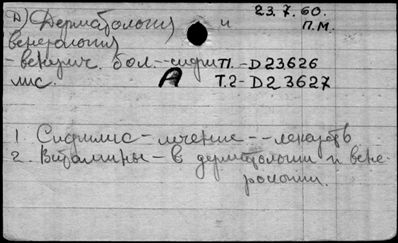 Д) Дерматология и 23.7.60.
венерология П.М.
- венерич. бол.--сифи П.-D23626
лис. А Т.2-D23627
1. Сифилис - лечение -- лекарств
2. Витамины - в дерматологии и вене-
рологии.